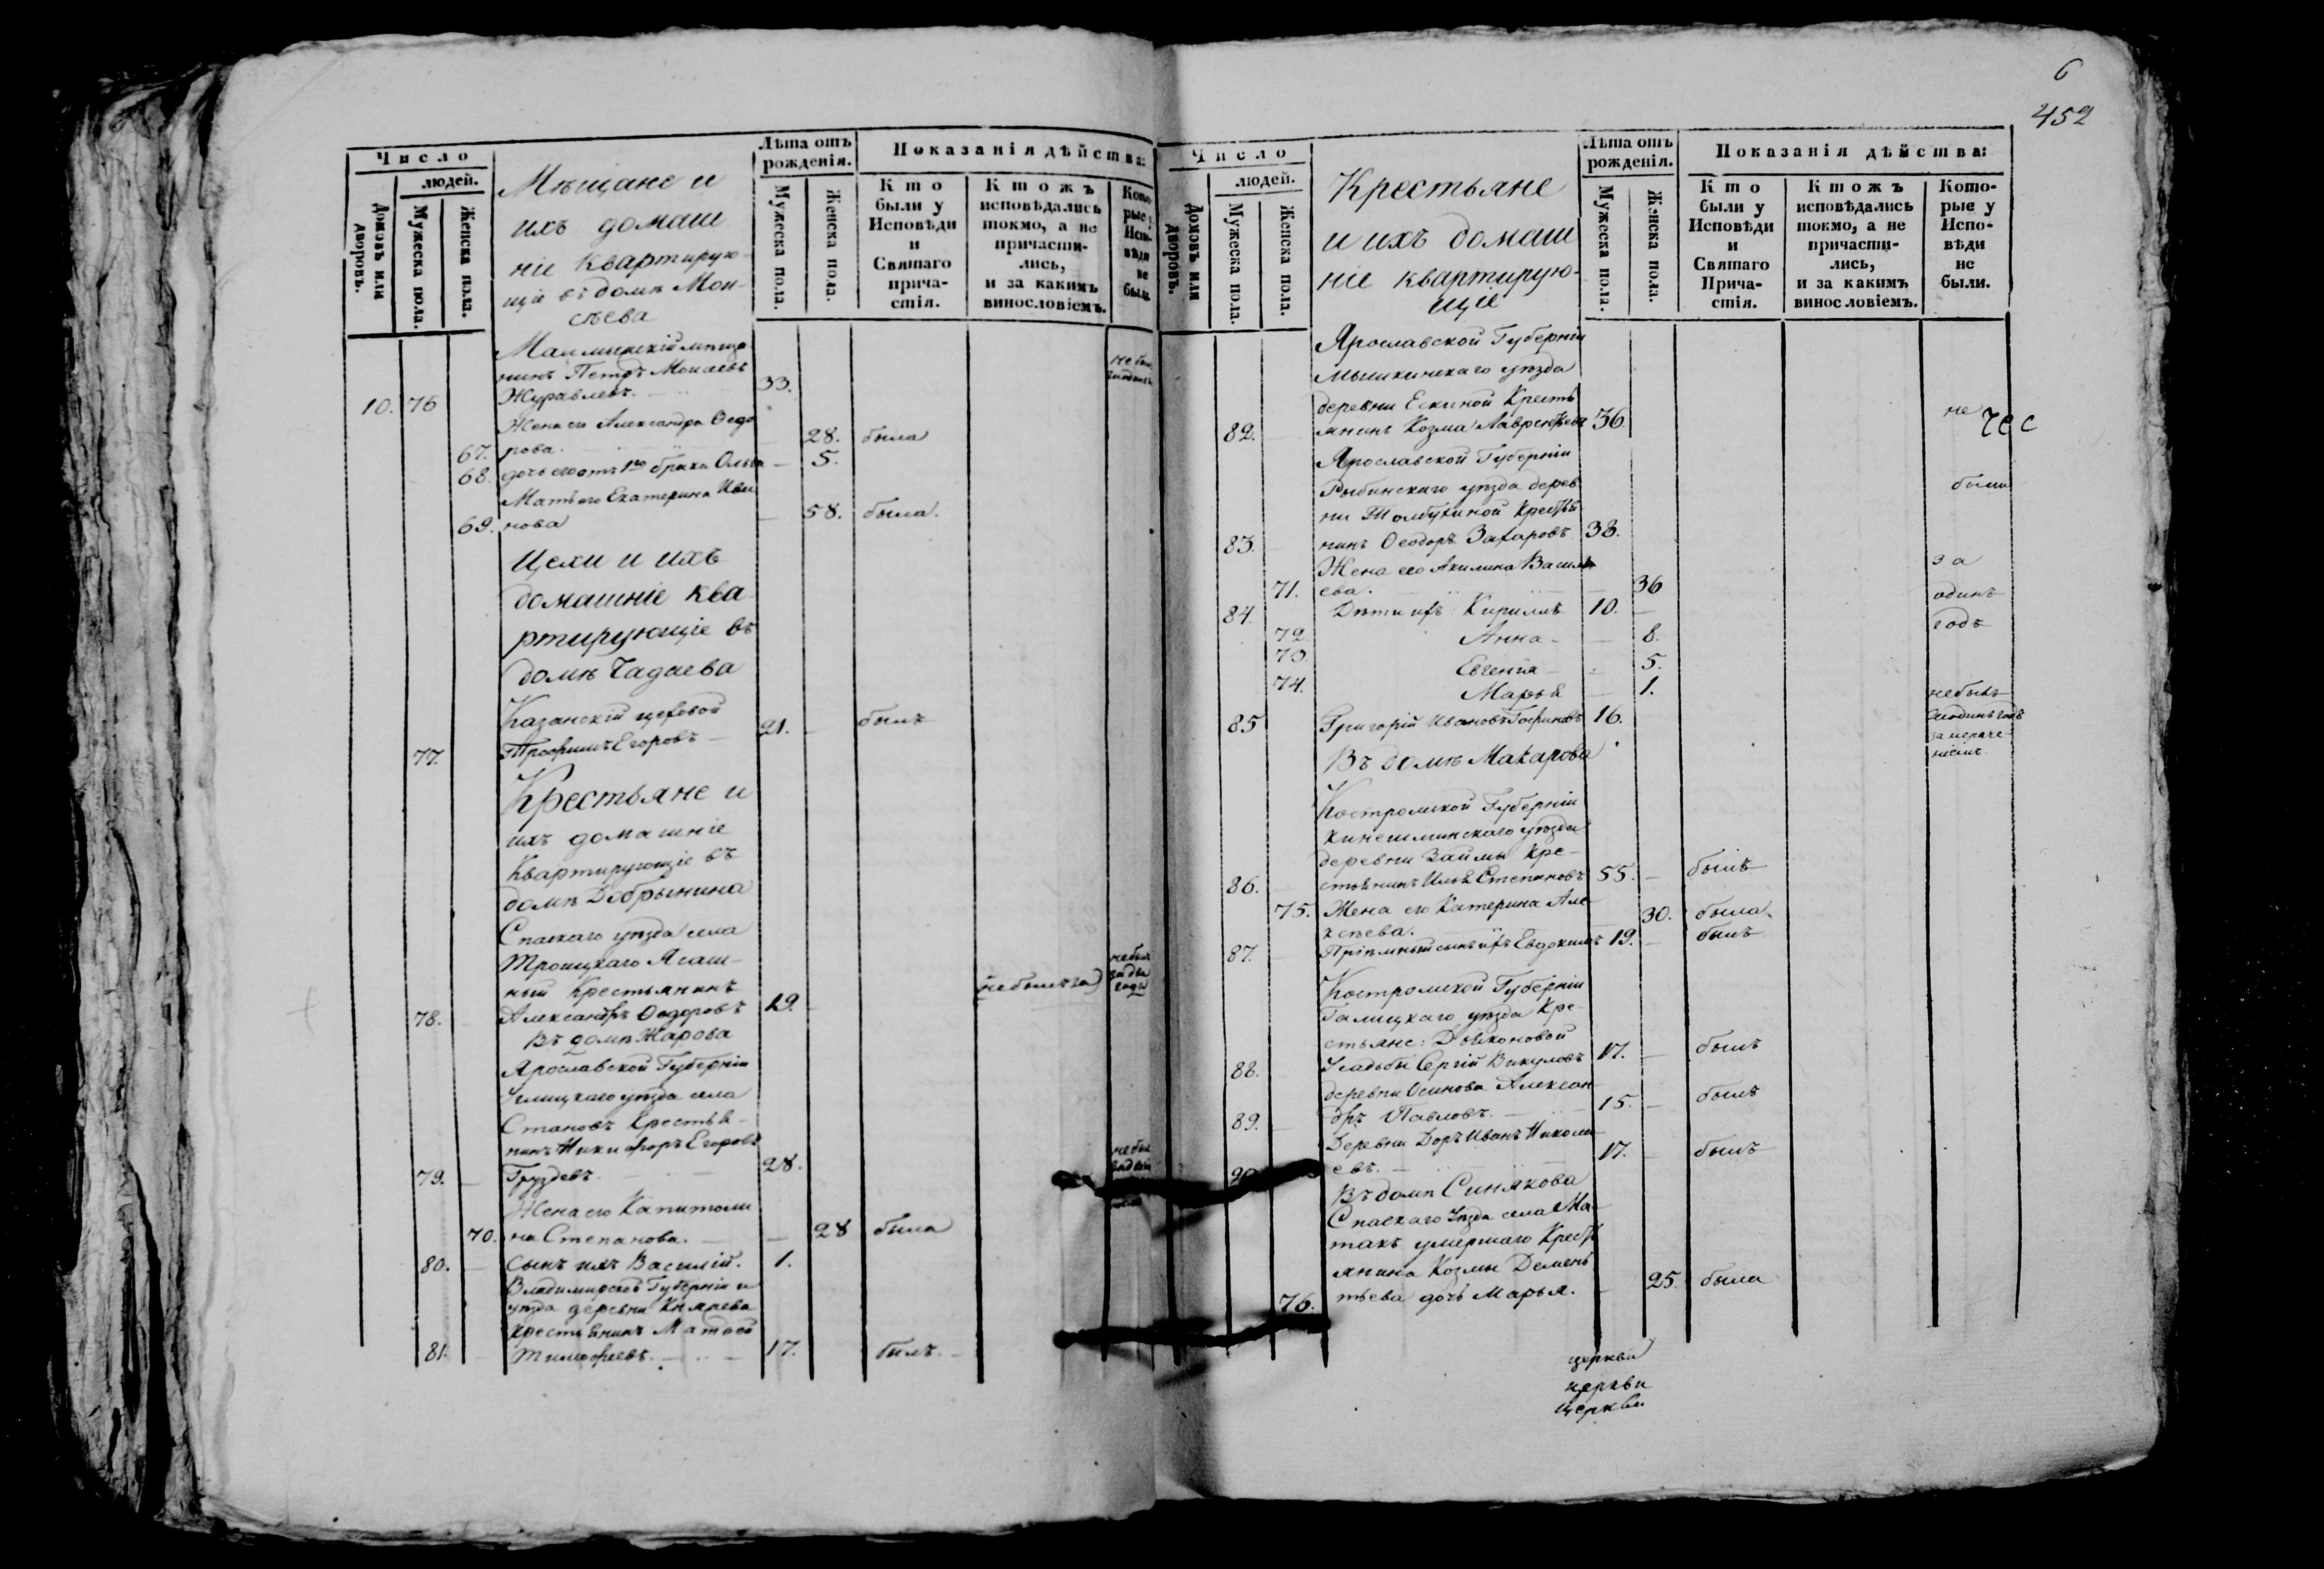 Число
людей.
Домовъ или дворовъ.
Мужеска пола.
Женска пола.
Мѣщане и
ихъ домаш
ніе квартирую-
щіе въ домѣ Мои-
сѣева
Лѣта отъ
рожденія.
Мужеска пола.
Женска пола.
Показанія дѣйства:
Кто
были у
Исповѣди
и
Святаго
прича-
стія.
Ктожъ
исповѣдались
токмо, а не
причасти-
лись,
и за какимъ
винословіемъ.
Кото-
рые у
Испо-
вѣди
не
были.
нинъ Петръ Моисеевъ
10. 76 Журавлевъ. 33.
Жена его Александра Ѳедо
67. рова. 28. была
68. дочь его отъ 1го брака Ольга 5.
Мать его Екатерина Ива
69. нова 58. была.
Цехи и ихъ
домашніе ква
ртирующіе въ
домѣ Чадаева
Казанскій цеховой
77. Трофимъ Егоровъ 21. былъ
Крестьяне и
ихъ домашніе
Квартирующіе въ
домѣ Добрынина
Спаскаго уѣзда села
Троицкаго Ясаш-
ный Крестьянинъ
78. Александръ Ѳедоровъ 19.
не былъ за
два
года
Въ домѣ Жарова
Ярославской Губерніи
Углицкаго уѣзда села
Становъ Крестья-
нинъ Никифоръ Егоровъ
79. Груздевъ 28.
Жена его Капитоли
70. на Степанова. 28 была
80. сынъ ихъ Василій. 1.
Владимирской Губерніи и
уѣзда деревни Княжева
крестьянинъ Матвей
81. Тимофеевъ. 17. былъ.
6
452
Число
людей.
Домовъ или дворовъ.
Мужеска пола.
Женска пола.
Крестьяне
и ихъ домаш
ніе квартирую-
щіе
Лѣта отъ
рожденія.
Мужеска пола.
Женска пола.
Показанія дѣйства:
Кто
были у
Исповѣди
и
Святаго
Прича-
стія.
Ктожъ
исповѣдались
токмо, а не
причасти-
лись,
и за какимъ
винословіемъ.
Кото-
рые у
Испо-
вѣди
не
были.
Ярославской Губерніи
Мышкинскаго уѣзда
деревни Ескиной Кресть
82. янинъ Козма Лаврентьевъ 36. не
Ярославской Губерніи
Рыбинскаго уѣзда дерев
были
ни Толбухиной Крестья
83. нинъ Ѳеодоръ Захаровъ 38.
Жена его Акилина Василь
за
71. ева. 36
одинъ
84. Дѣти ихъ Кирилъ 10.
годъ
72. Анна 8.
73. Евгенія 5.
74. Марья 1.
85 Григорій Ивановъ 16.
не былъ
одинъ годъ
за нераче-
ніемъ
Въ домѣ Макарова
Костромской Губерніи
Кинешминскаго уѣзда
деревни Заимы Кре-
86. стьянинъ Илья Степановъ 55. былъ
75. Жена его Катерина Але
ксѣева. 30. была.
87. Пріемный сынъ ихъ Евдокимъ 19. былъ
Костромской Губерніи
Галицкаго уѣзда Кре-
стьяне: Дьяконовой
88. Усадьбы Сергій Викуловъ 17. былъ
деревни Осинова Алексан
89. дръ Павловъ. 15. былъ
Деревни Доръ Иванъ Никола
90. евъ. 17. былъ
Въ домѣ Синякова
Спаскаго Уѣзда села Ма-
такъ умершаго Кресть
янина Козмы Демень
76. тьева дочь Марья. 25. была
церкви
церкви
церкви